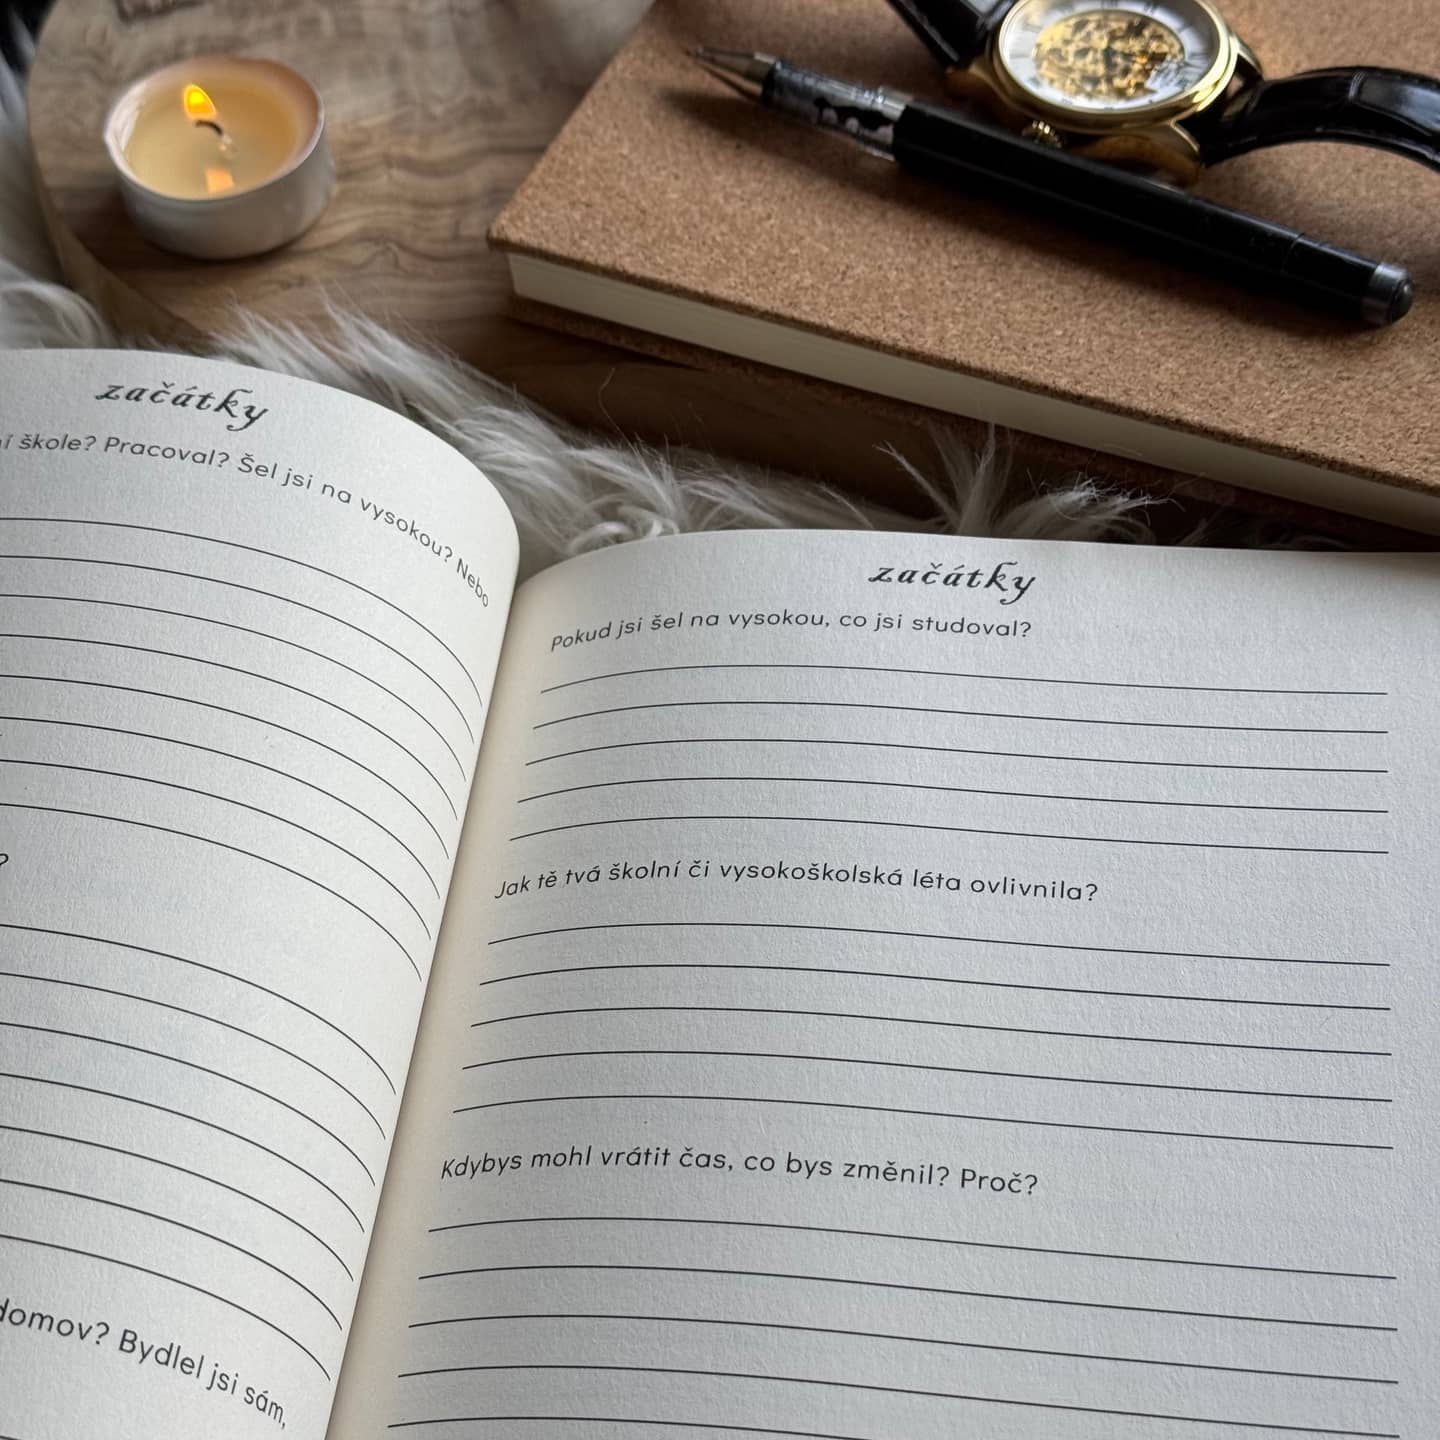 začátky
ní škole? Pracoval? Šel jsi na vysokou? Nebo
?
domov? Bydlel jsi sám,
začátky
Pokud jsi šel na vysokou, co jsi studoval?
Jak tě tvá školní či vysokoškolská léta ovlivnila?
Kdybys mohl vrátit čas, co bys změnil? Proč?